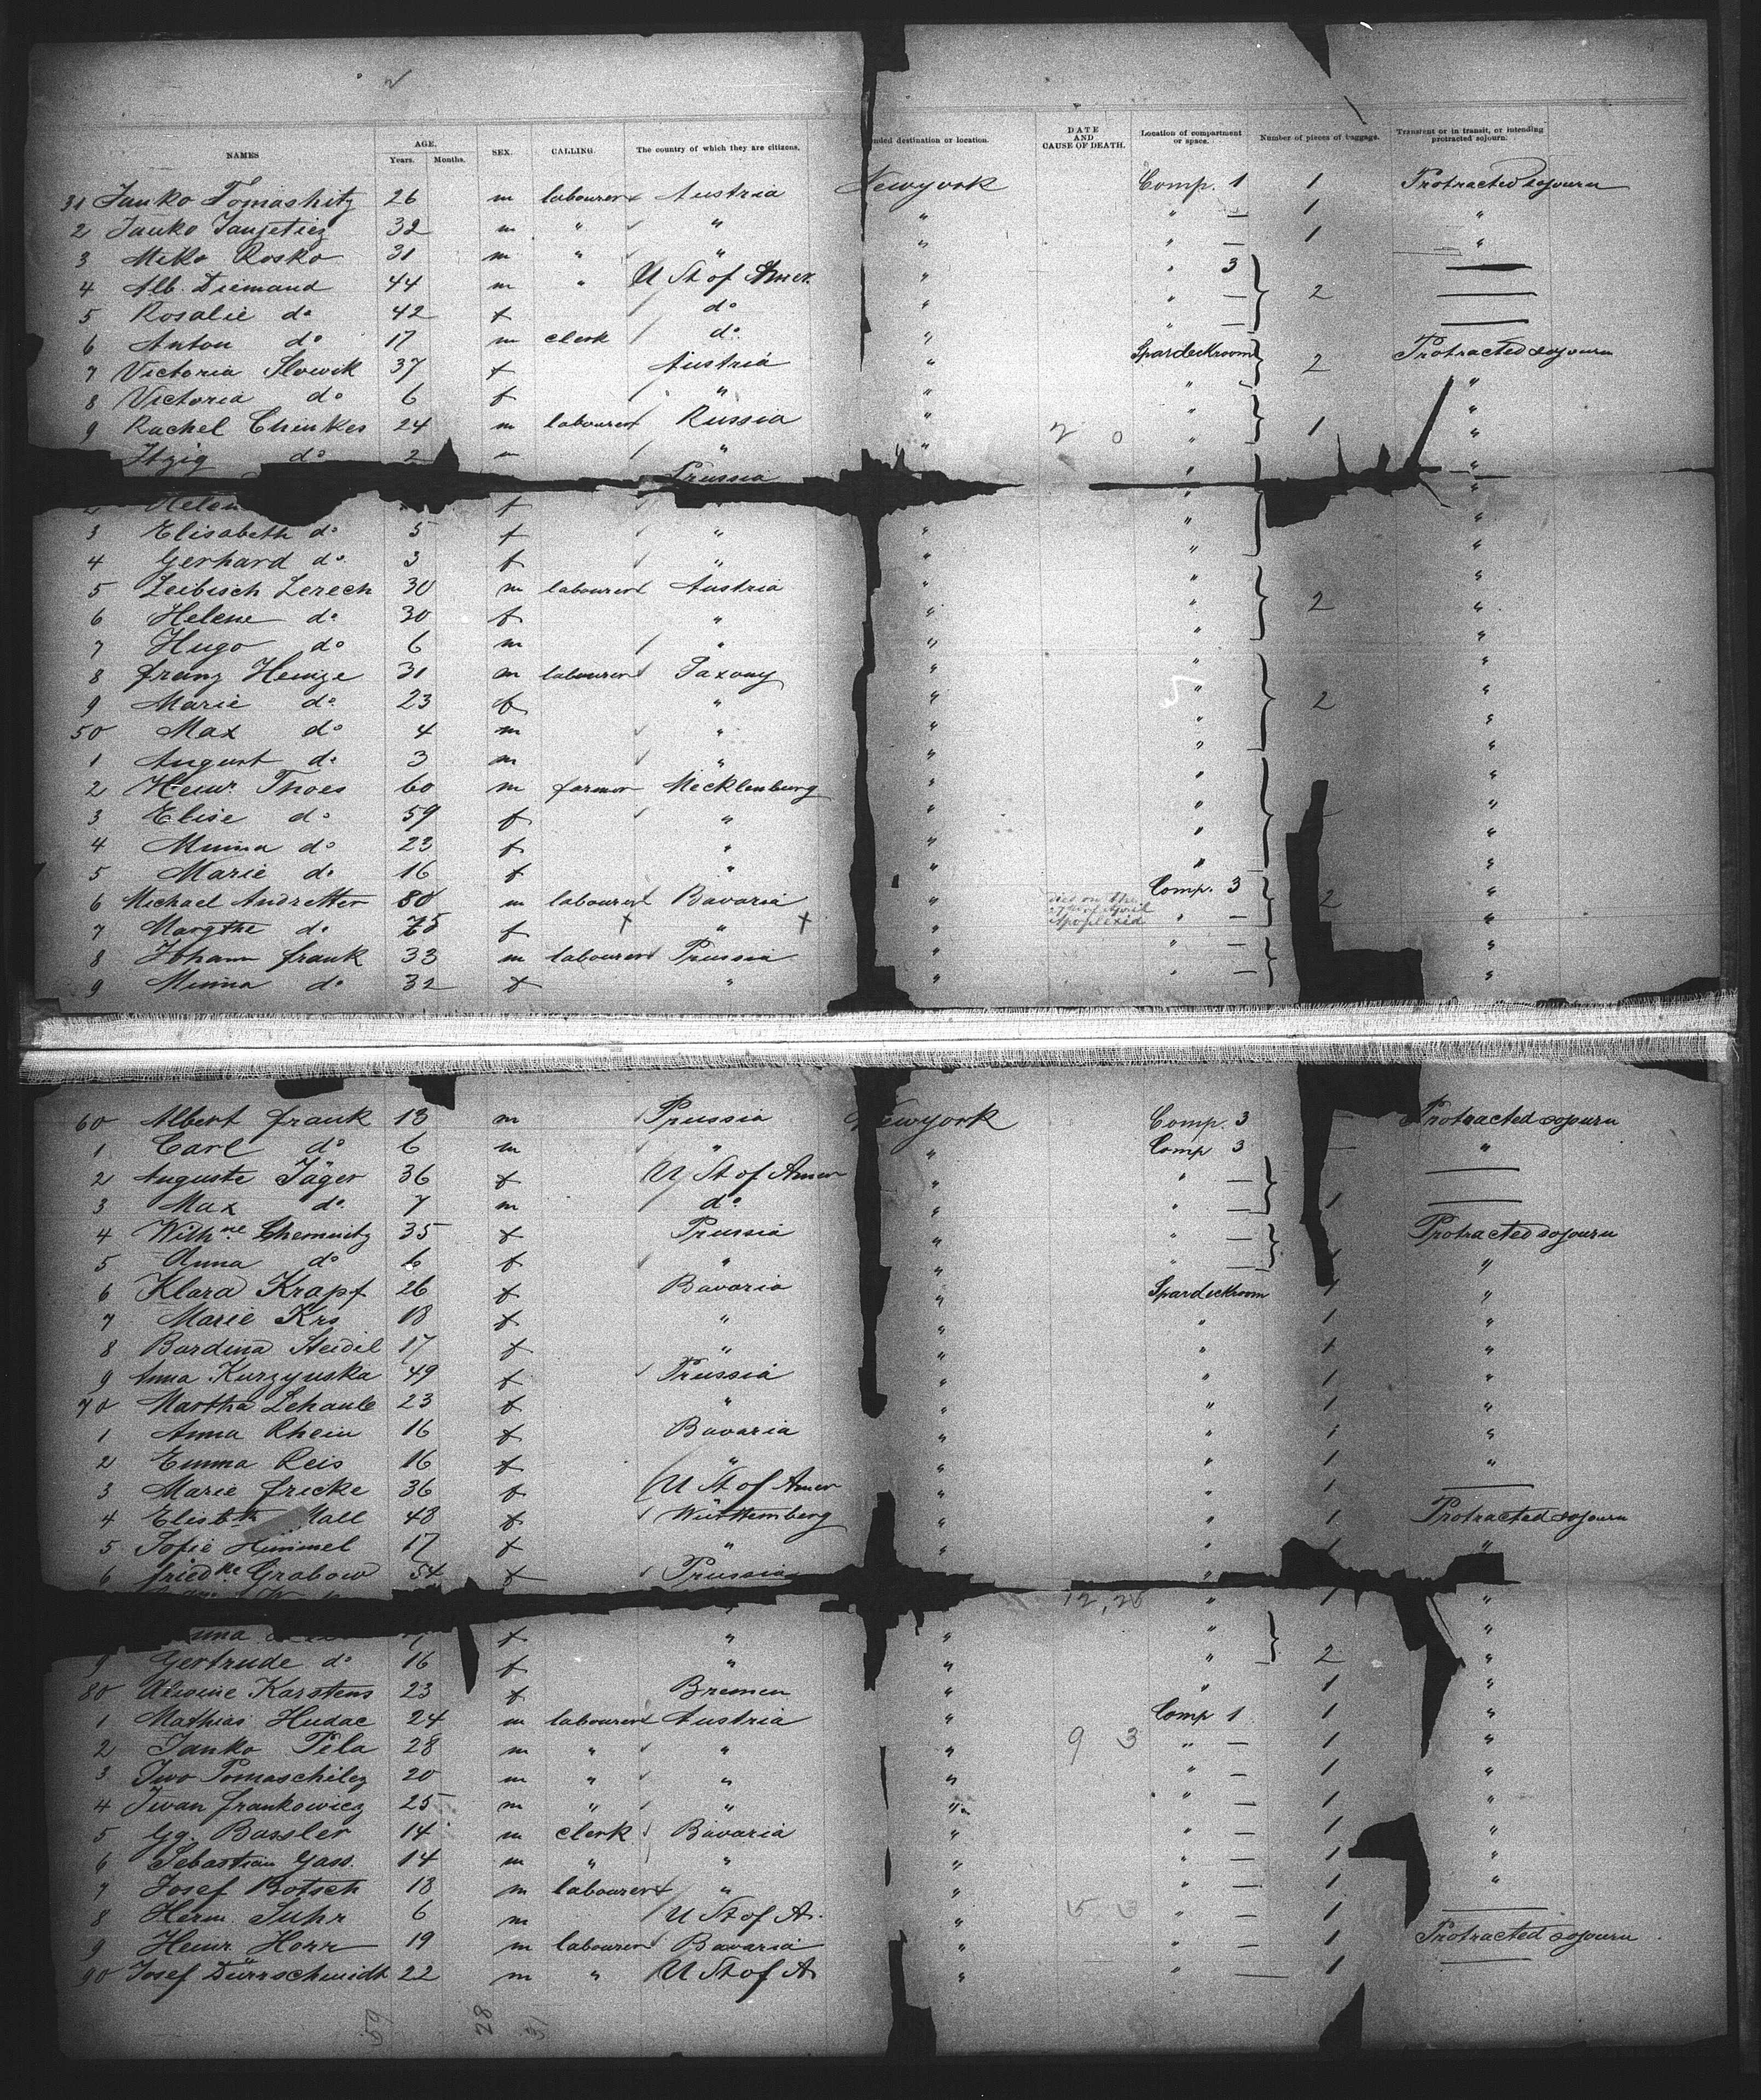 NAMES AGE. Years. Months. SEX. CALLING. The country of which they are citizens. nded destination or location. DATE AND CAUSE OF DEATH. Location of compartment or space. Number of pieces of baggage. Transient or in transit, or intending protracted sojourn.
31 Janko Tomashitz 26 m labourer Austria Newyork Comp. 1 1 Protracted sojourn
2 Janko 32 m " " " " — 1 "
3 Miko Rosko 31 m " " " " — 1 "
4 Alb. Diemand 44 m " U St of Amer. " " 3 —
5 Rosalie do 42 f do " " — 2 —
6 Anton do 17 m clerk do " " — —
7 Victoria Slowik 37 f Austria " Spardeckroom 2 Protracted sojourn
8 Victoria do 6 f " " " "
9 Rachel Chinkes 24 m labourer Russia " " 1 "
Itzig do 2 m " " "
Prussia " "
2 Helen f " "
3 Elisabeth do 5 f " " " "
4 Gerhard do 3 f " " " "
5 Leibisch Zerech 30 m labourer Austria " " "
6 Helene do 30 f " " " 2 "
7 Hugo do 6 m " " " "
8 Franz Heinze 31 m labourer Saxony " " "
9 Marie do 23 f " " " 2 "
50 Max do 4 m " " " "
1 August do 3 m " " " "
2 Heinr. Thoes 60 m farmer Mecklenburg " " "
3 Elise do 59 f " " " "
4 Minna do 23 f " " " "
5 Marie do 16 f " " " "
6 Michael Andretter 80 m labourer Bavaria " died on the 27th of April Apoplexia Comp. 3 2 "
7 Margthe do 75 f " " " — "
8 Johann Frank 33 m labourer Prussia " " — "
9 Minna do 32 f " " " — "
60 Albert Frank 13 m Prussia Newyork Comp. 3 Protracted sojourn
1 Carl do 6 m " " Comp 3 "
2 Auguste Jäger 36 f U St of Amer " " — —
3 Max do 7 m do " " — 1 —
4 Wilhne Chemnitz 35 f Prussia " " — Protracted sojourn
5 Anna do 6 f " " " — 1 "
6 Klara Krapf 26 f Bavaria " Spardeckroom 1 "
7 Marie Krs 18 f " " " 1 "
8 Bardina Steidil 17 f " " " 1 "
9 Anna Kurzynska 49 f Prussia " " 1 "
70 Martha Lehaule 23 f " " " 1 "
1 Anna Rhein 16 f Bavaria " " 1 "
2 Emma Reis 16 f " " " 1 "
3 Marie Fricke 36 f U St of Amer " " 1 —
4 48 f Württemberg " " 1 Protracted sojourn
5 Sofie Himmel 17 f " " " 1 "
6 Friedke Grabow 54 f Prussia "
" 1 "
f " " " "
9 Gertrude do 16 f " " " 2 "
80 Alwine Karstens 23 f Bremen " " 1 "
1 Mathias Hudac 24 m labourer Austria " Comp 1 1 "
2 Janko Pela 28 m " " " 9 3 " — 1 "
3 Iwo Pomaschilez 20 m " " " " — 1 "
4 Iwan Frankowicz 25 m " " " " — 1 "
5 Gg. Bassler 14 m clerk Bavaria " " — 1 "
6 Sebastian Gass. 14 m " " " " — 1 "
7 Josef Botsch 18 m labourer " " " — 1 "
8 Herm. Suhr 6 m U St of A. " " — 1 —
9 Heinr. Horr 19 m labourer Bavaria " " — 1 Protracted sojourn
90 Josef Dürrschmidt 22 m " U St of A " " — 1 —
59 28 31